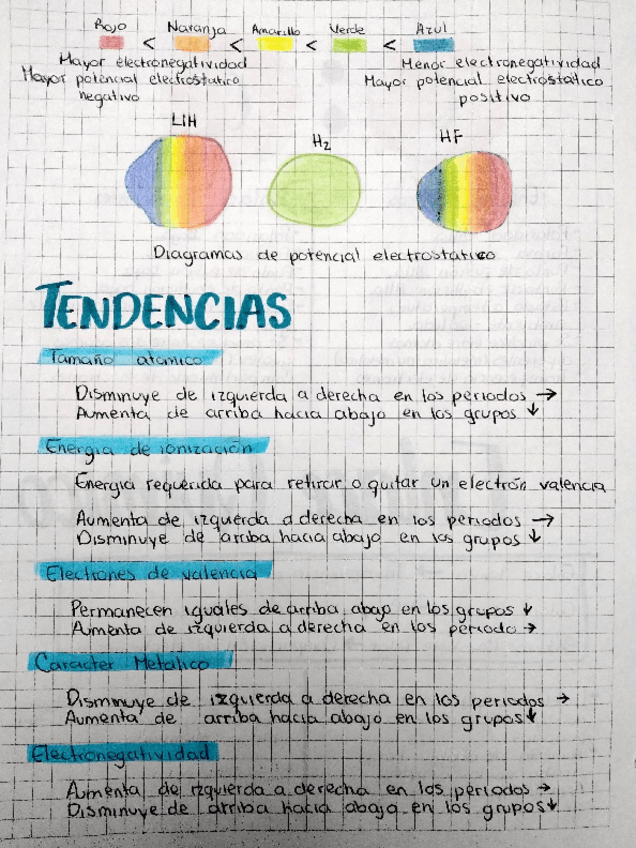 Rojo < Naranja < Amarillo < Verde < Azul
Mayor electronegatividad
Mayor potencial electrostatico
negativo
Menor electronegatividad
Mayor potencial electrostatico
positivo
LiH
H2
HF
Diagramas de potencial electrostatico
TENDENCIAS
Tamaño atomico
Disminuye de izquierda a derecha en los periodos →
Aumenta de arriba hacia abajo en los grupos ↓
Energia de ionización
Energia requerida para retirar o quitar un electrón valencia
Aumenta de izquierda a derecha en los periodos →
Disminuye de arriba hacia abajo en los grupos ↓
Electrones de valencia
Permanecen iguales de arriba abajo en los grupos ↓
Aumenta de izquierda a derecha en los periodo →
Caracter Metalico
Disminuye de izquierda a derecha en los periodos →
Aumenta de arriba hacia abajo en los grupos ↓
Electronegatividad
Aumenta de izquierda a derecha en los periodos →
Disminuye de arriba hacia abajo en los grupos ↓